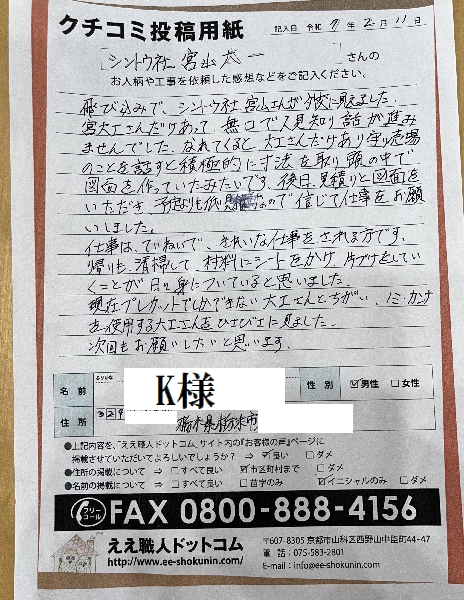 クチコミ投稿用紙
記入日 令和 7年 2月 11日
「シントウ社 宮山太一 」さんの
お人柄や工事を依頼した感想などをご記入ください。
飛び込みで、シントウ社 宮山さんが 見えました。
宮大工さんだけあって、無口で人見知り話が進み
ませんでした。なれてくると、大工さんだけあり 売場
のことを話すと積極的に寸法を取り頭の中で
図面を作っていたみたいです。後日、見積りと図面を
いただき 予定よりも低 ので信じて仕事をお願
いしました。
仕事は、ていねいで、きれいな仕事をされる方です。
帰りも、清掃して、材料にシートをかけ 片づけをしてい
くことが日々身についていると思いました。
現在プレカットでしかできない大工さんとちがい、ノミ・カンナ
を使用する大工さんをひさびさに見ました。
次回もお願いしたいと思います。
名前 ふりがな K様 性別 ☑男性 □女性
住所 栃木県栃木市
●上記内容を、「ええ職人ドットコム」サイト内の『お客様の声』ページに
掲載させていただいてよろしいでしょうか？ ⇒ ☑良い □ダメ
●住所の掲載について ⇒ □すべて良い ☑市区町村まで □ダメ
●名前の掲載について ⇒ □すべて良い □苗字のみ ☑イニシャルのみ □ダメ
フリーコール FAX 0800-888-4156
ええ職人ドットコム
http://www.ee-shokunin.com/
〒607-8305 京都市山科区西野山中臣町44-47
電話：075-583-2801
E-mail：info@ee-shokunin.com